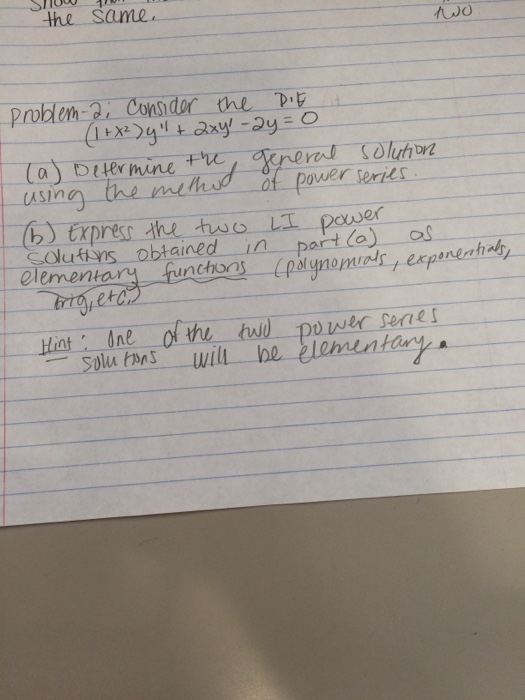 the same.
two
Problem-2: Consider the D.E
(1+x²)y" + 2xy' - 2y = 0
(a) Determine the general solution
using the method of power series.
(b) Express the two LI power
solutions obtained in part (a) as
elementary functions (polynomials, exponentials,
trig, etc.)
Hint: One of the two power series
solutions will be elementary.